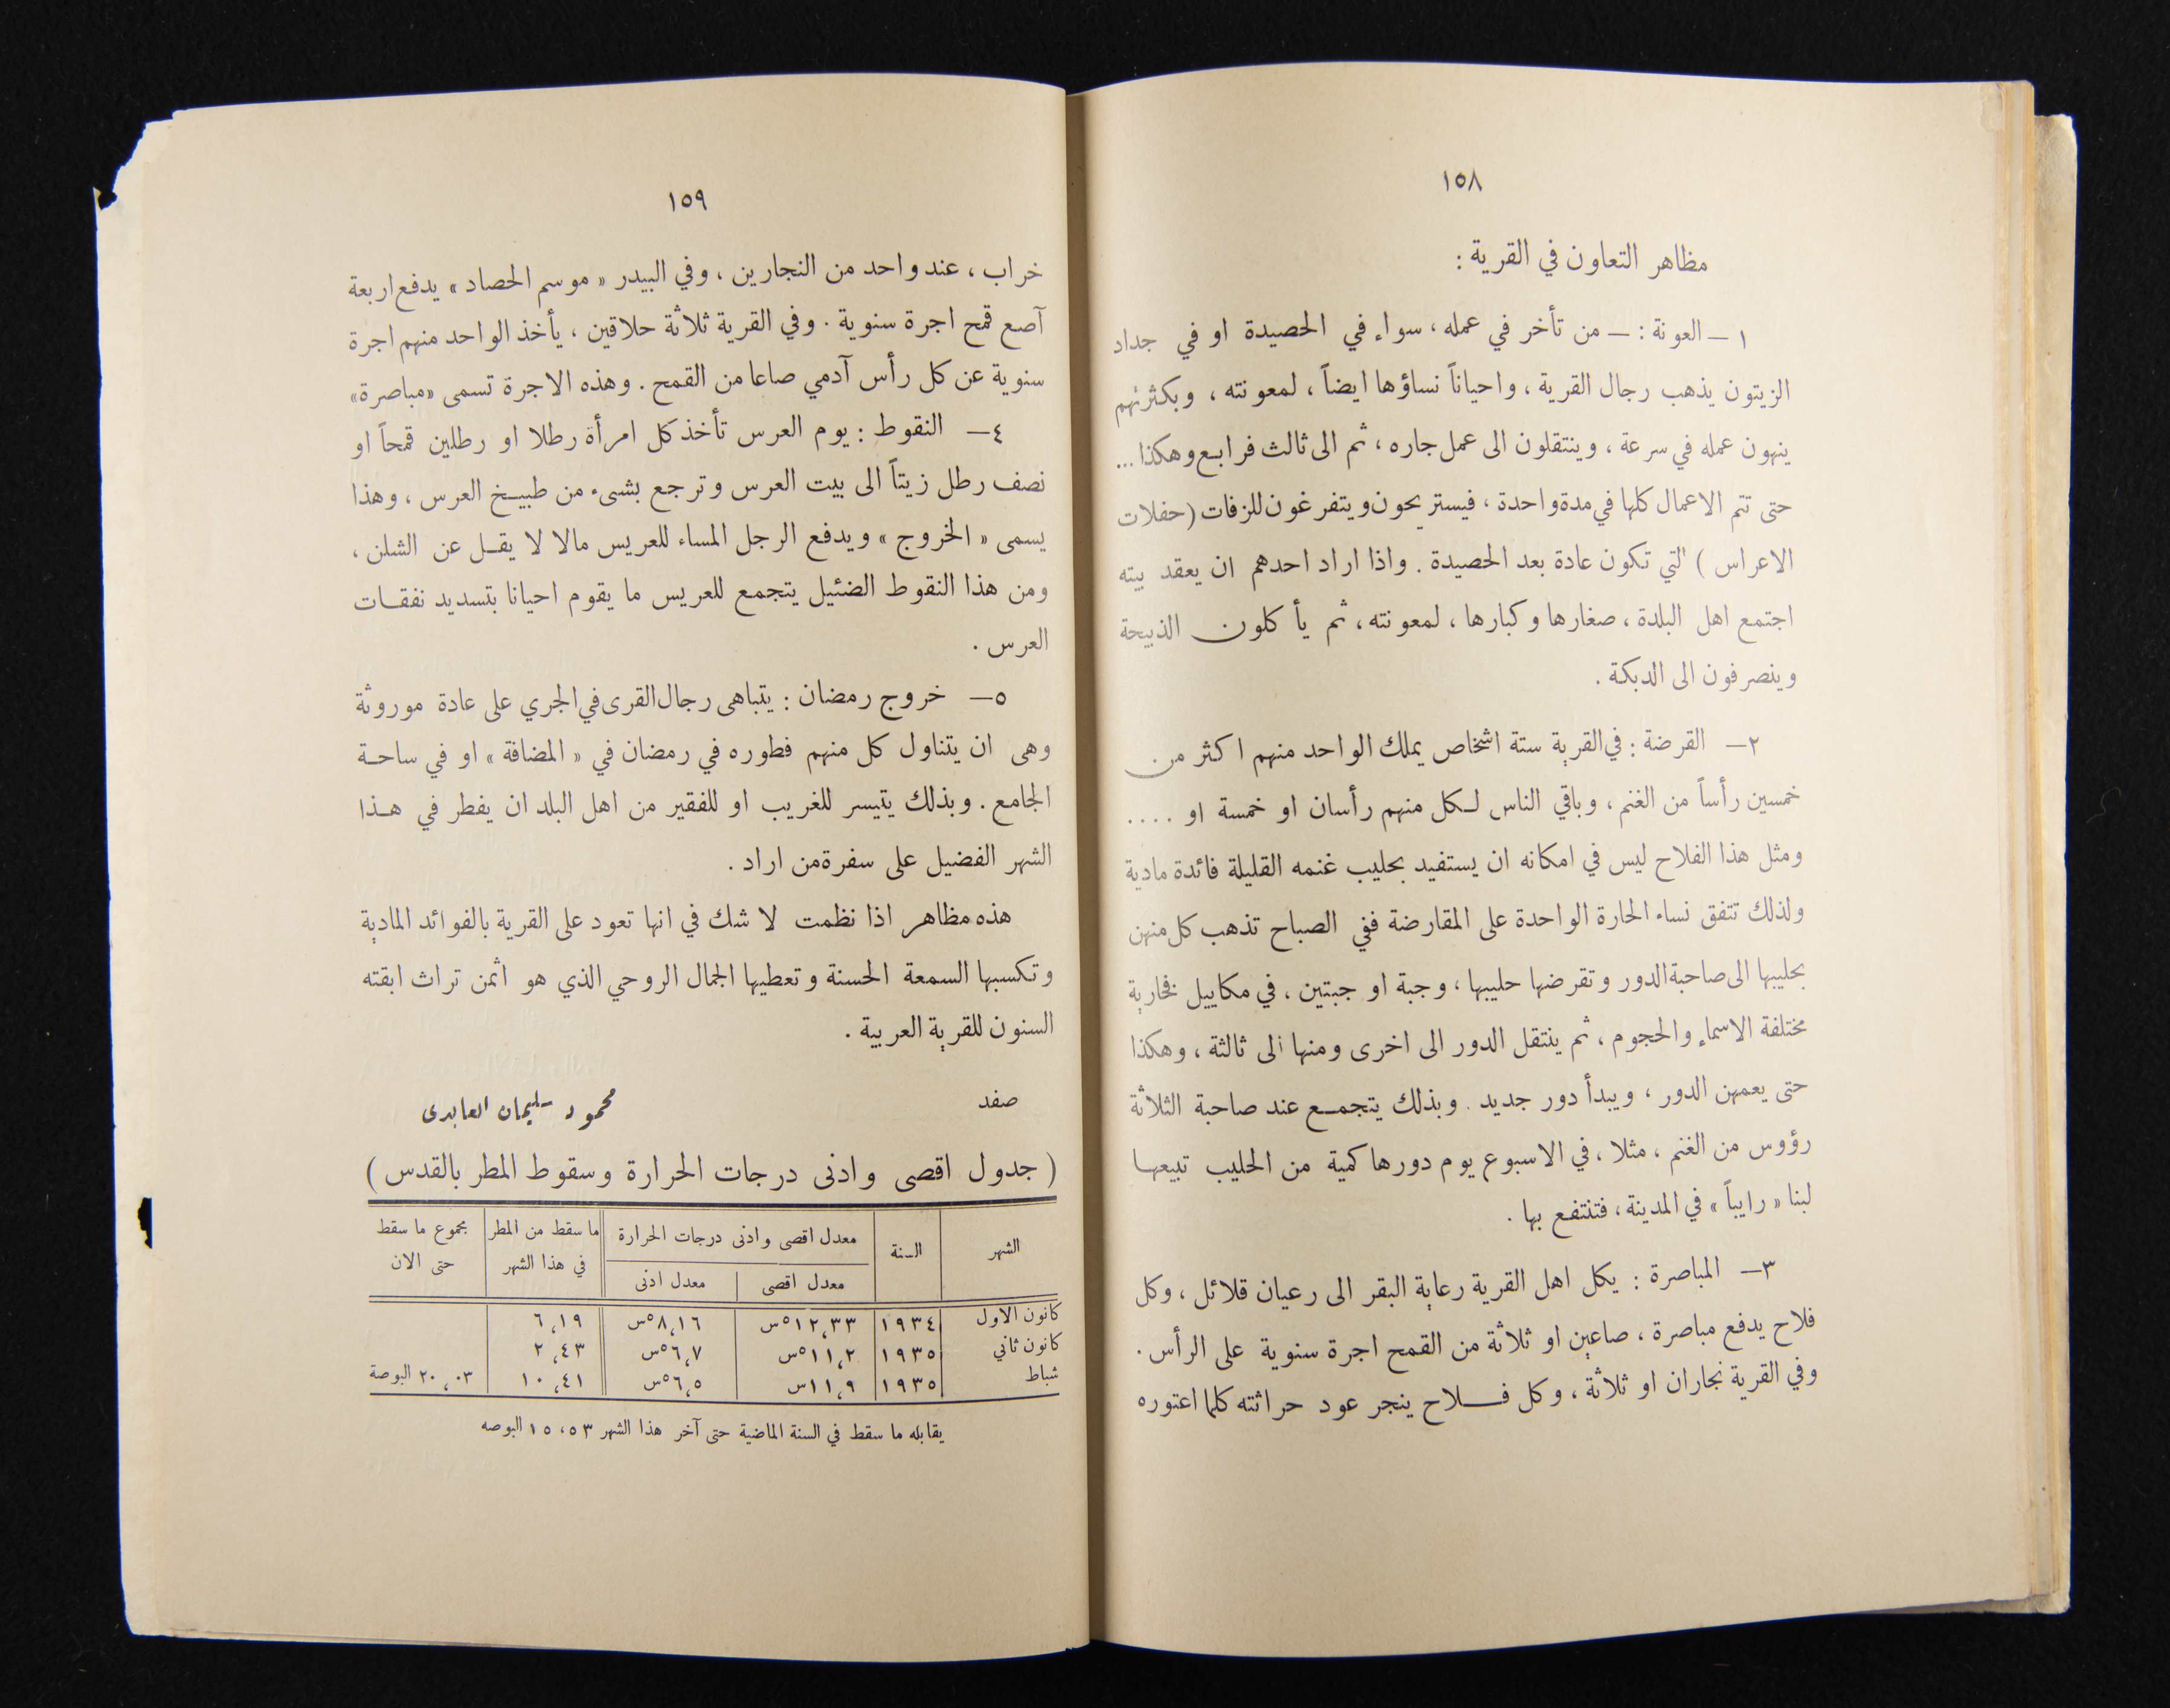 ١٥٨
مظاهر التعاون في القرية :
١ – العونة : – من تأخر في عمله ، سواء في الحصيدة او في جداد
الزيتون يذهب رجال القرية ، واحياناً نساؤها ايضاً ، لمعونته ، وبكثرتهم
ينهون عمله في سرعة ، وينتقلون الى عمل جاره ، ثم الى ثالث فرابع وهكذا ...
حتى تتم الاعمال كلها في مدة واحدة ، فيستريحون ويتفرغون للزفات ( حفلات
الاعراس ) التي تكون عادة بعد الحصيدة . واذا اراد احدهم ان يعقد بيته
اجتمع اهل البلدة ، صغارها وكبارها ، لمعونته ، ثم يأكلون الذبيحة
وينصرفون الى الدبكة .
٢ – القرضة : في القرية ستة اشخاص يملك الواحد منهم اكثر من
خمسين رأساً من الغنم ، وباقي الناس لكل منهم رأسان او خمسة او ....
ومثل هذا الفلاح ليس في امكانه ان يستفيد بحليب غنمه القليلة فائدة مادية
ولذلك تتفق نساء الحارة الواحدة على المقارضة ففي الصباح تذهب كل منهن
بحليبها الى صاحبة الدور وتقرضها حليبها ، وجبة او جبتين ، في مكاييل فخارية
مختلفة الاسماء والحجوم ، ثم ينتقل الدور الى اخرى ومنها الى ثالثة ، وهكذا
حتى يعمهن الدور ، ويبدأ دور جديد . وبذلك يتجمع عند صاحبة الثلاثة
رؤوس من الغنم ، مثلا ، في الاسبوع يوم دورها كمية من الحليب تبيعها
لبنا « رايباً » في المدينة ، فتنتفع بها .
٣ – المباصرة : يكل اهل القرية رعاية البقر الى رعيان قلائل ، وكل
فلاح يدفع مباصرة ، صاعين او ثلاثة من القمح اجرة سنوية على الرأس .
وفي القرية نجاران او ثلاثة ، وكل فلاح ينجر عود حراثته كلما اعتوره
١٥٩
خراب ، عند واحد من النجارين ، وفي البيدر « موسم الحصاد » يدفع اربعة
آصع قمح اجرة سنوية . وفي القرية ثلاثة حلاقين ، يأخذ الواحد منهم اجرة
سنوية عن كل رأس آدمي صاعا من القمح . وهذه الاجرة تسمى «مباصرة»
٤ – النقوط : يوم العرس تأخذ كل امرأة رطلا او رطلين قمحاً او
نصف رطل زيتاً الى بيت العرس وترجع بشىء من طبيخ العرس ، وهذا
يسمى « الخروج » ويدفع الرجل المساء للعريس مالا لا يقل عن الشلن ،
ومن هذا النقوط الضئيل يتجمع للعريس ما يقوم احيانا بتسديد نفقات
العرس .
٥ – خروج رمضان : يتباهى رجال القرى في الجري على عادة موروثة
وهى ان يتناول كل منهم فطوره في رمضان في « المضافة » او في ساحة
الجامع . وبذلك يتيسر للغريب او للفقير من اهل البلد ان يفطر في هذا
الشهر الفضيل على سفرة من اراد .
هذه مظاهر اذا نظمت لا شك في انها تعود على القرية بالفوائد المادية
وتكسبها السمعة الحسنة وتعطيها الجمال الروحي الذي هو اثمن تراث ابقته
السنون للقرية العربية .
صفد محمود سليمان العابدى
( جدول اقصى وادنى درجات الحرارة وسقوط المطر بالقدس )
الشهر السنة معدل اقصى وادنى درجات الحرارة ما سقط من المطر مجموع ما سقط
معدل اقصى معدل ادنى في هذا الشهر حتى الان
كانون الاول ١٩٣٤ ١٢,٣٣°س ٨,١٦°س ٦,١٩
كانون ثاني ١٩٣٥ ١١,٢°س ٦,٧°س ٢,٤٣
شباط ١٩٣٥ ١١,٩س ٦,٥°س ١٠,٤١ ٢٠,٠٣ البوصة
يقابله ما سقط في السنة الماضية حتى آخر هذا الشهر ١٥,٥٣ البوصه